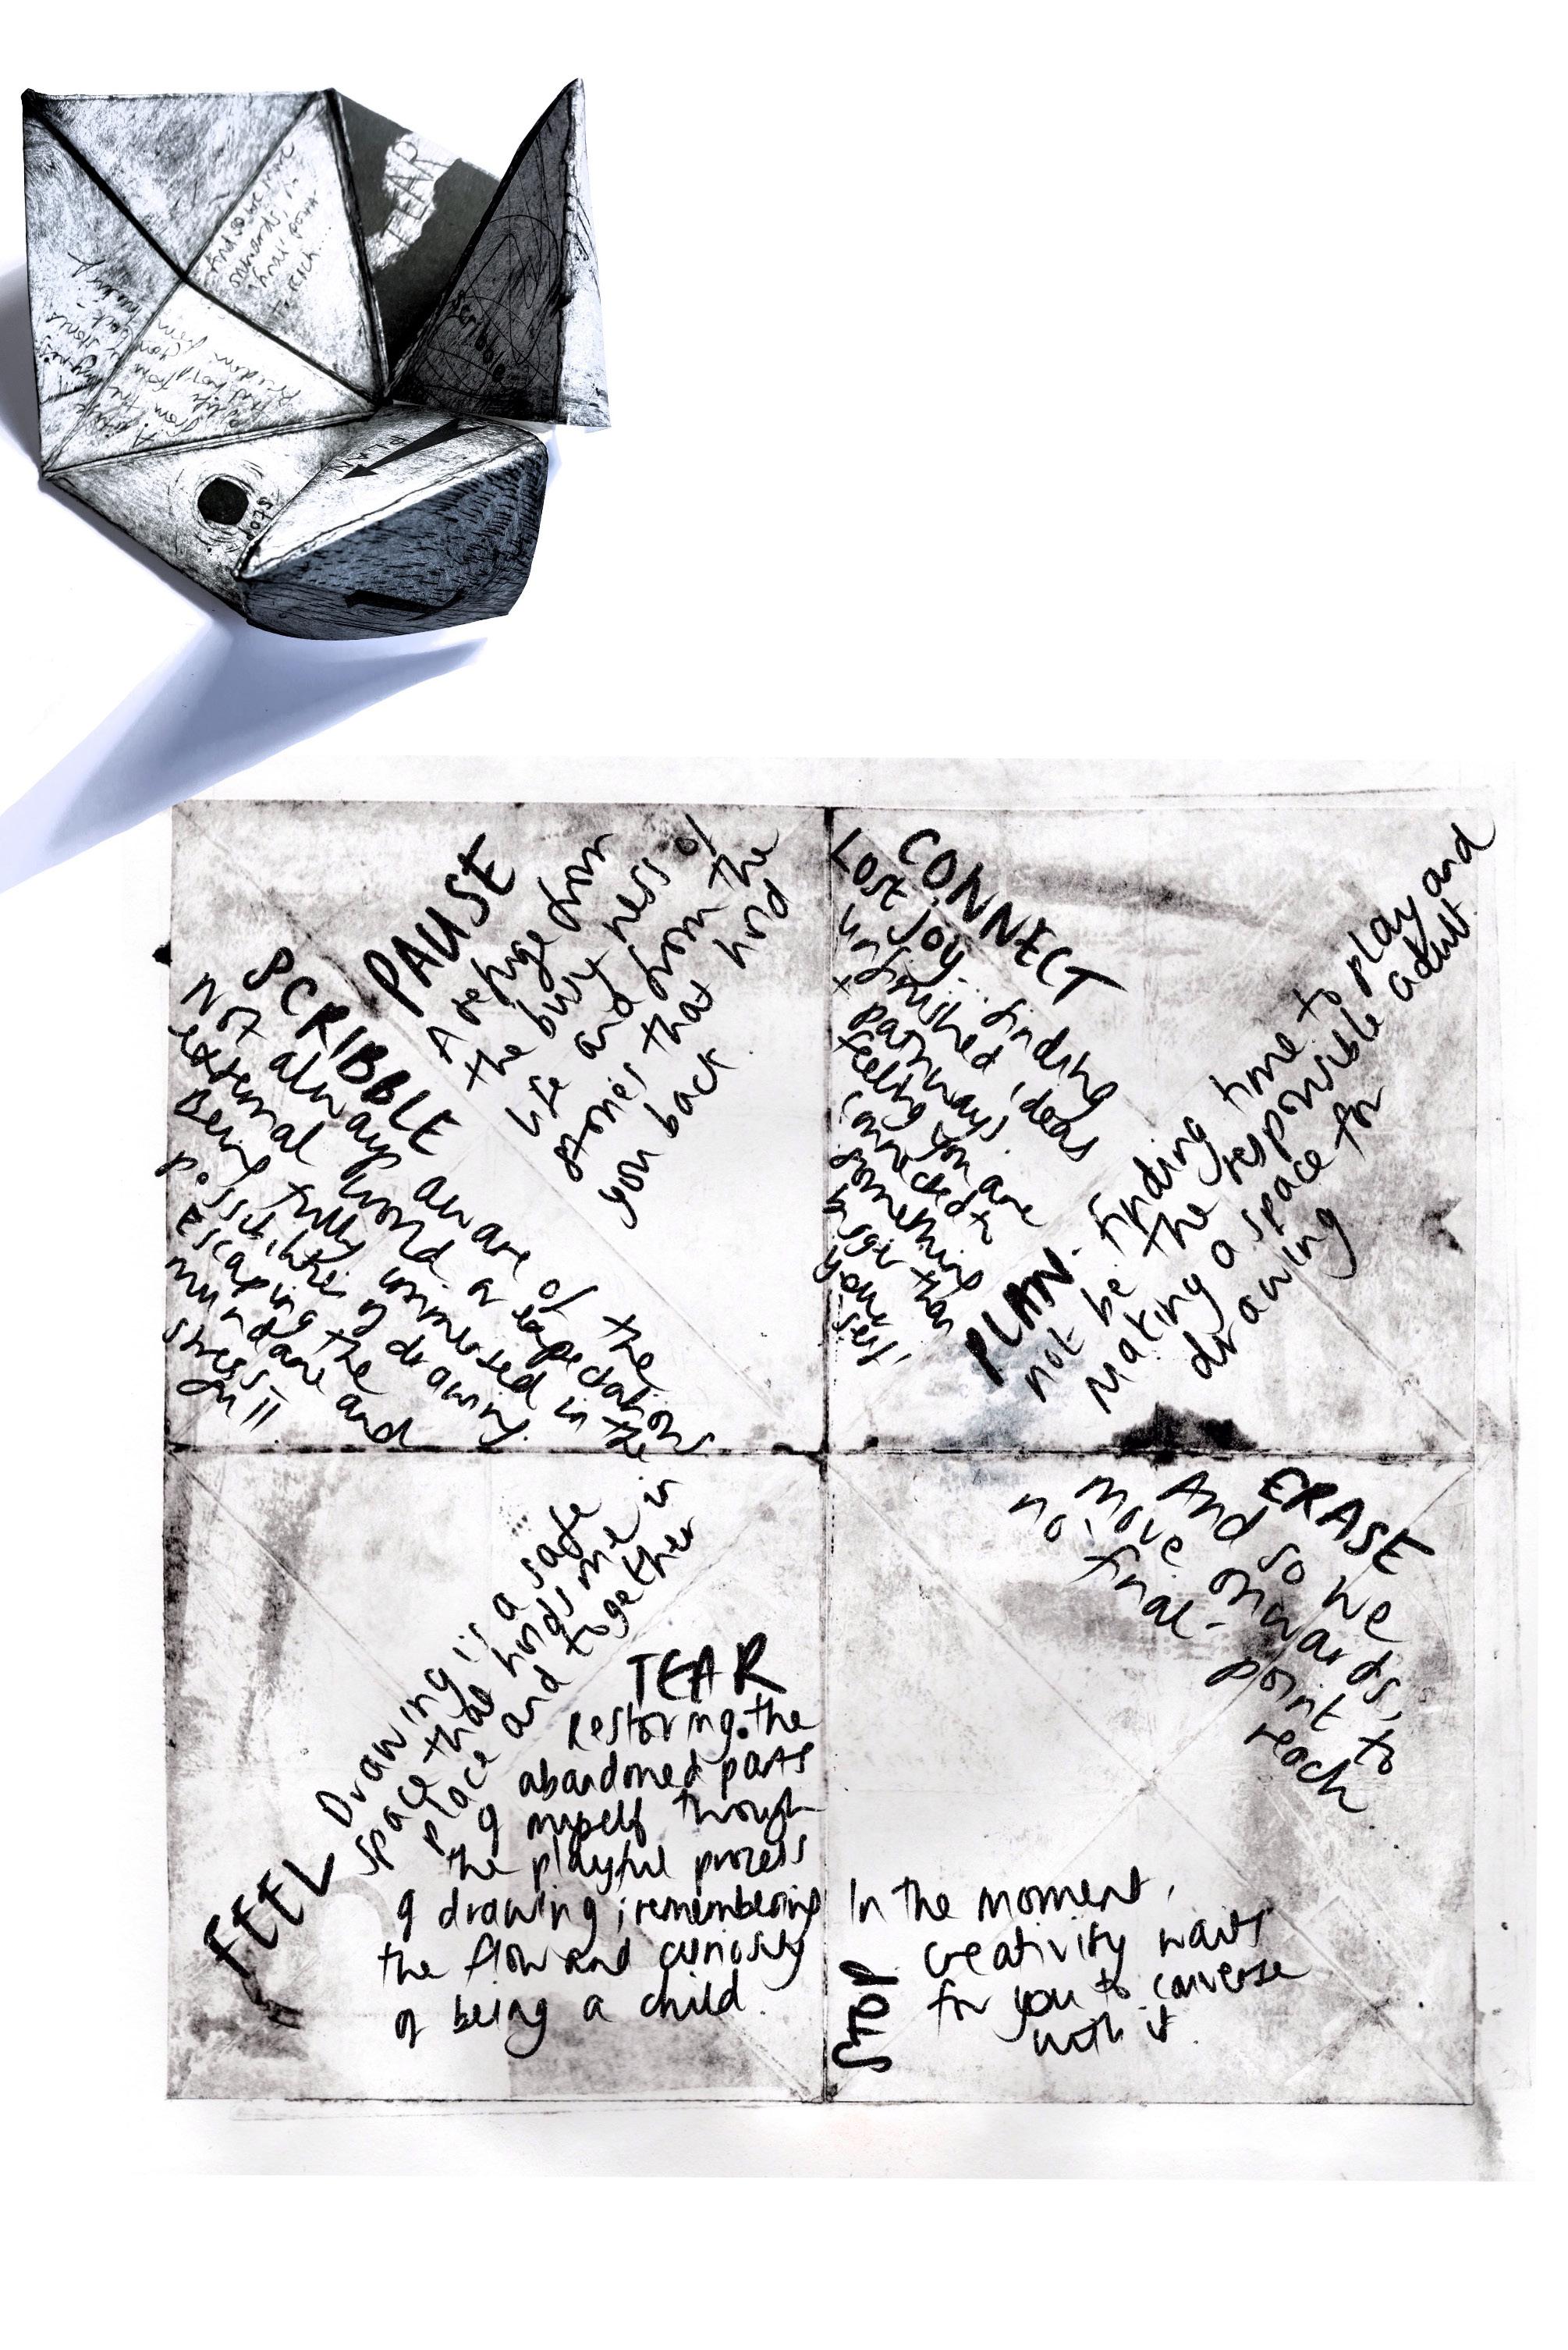 TEAR
And so we move
onwards, no
final point
to reach...
Scribble
PLAN
STOP
PAUSE
A refuge from
the busyness of
life and from the
stories that hold
you back
SCRIBBLE
Not always aware of the
external world or expectations
Being fully immersed in the
possibilities of drawing.
Escaping the
mundane and
stressful
CONNECT
Lost joy... finding
unfinished ideas
+ pathways.
feeling you are
connected to
something
bigger than
your
self
PLAN. finding time to play and
not be the responsible adult.
Making a space for
drawing
FEEL
Drawing is a safe
space that holds me in
place and together
TEAR
Restoring the
abandoned parts
of myself through
the playful process
of drawing; remembering
the flow and curiosity
of being a child.
ERASE
And so we
move onwards,
no 'final- point to
reach...
STOP
In the moment,
creativity waits
for you to converse
with it.